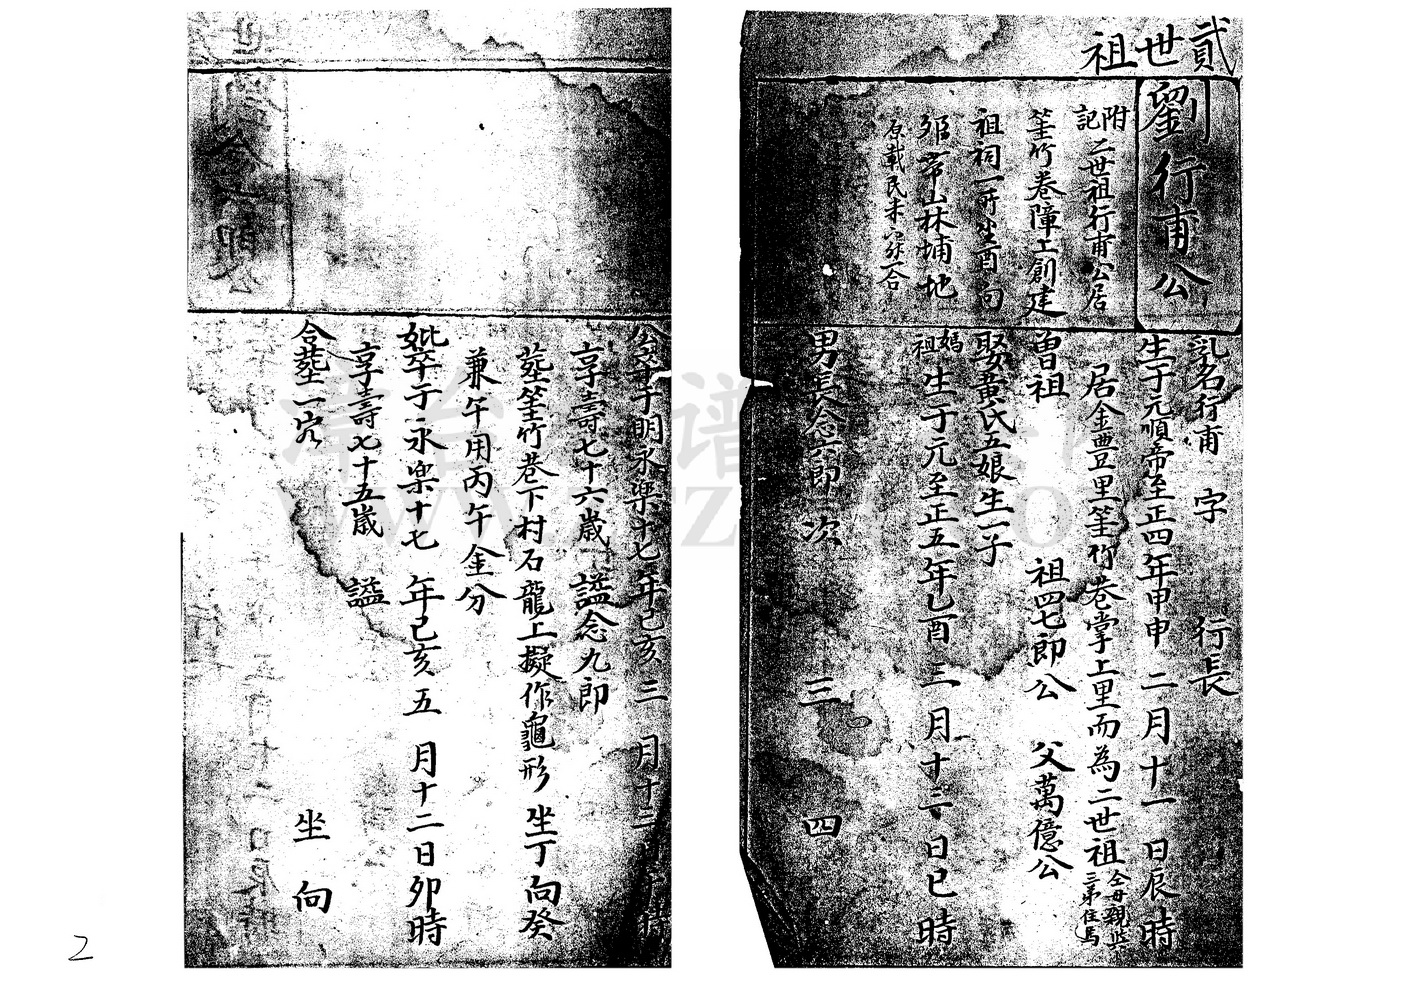 貳世祖
劉行甫公
附記
二世祖行甫公居
筀竹巷障上創建
祖祠一所坐酉向
山林埔地
原載民米
乳名行甫 字 行長
生于元順帝至正四年甲申 二月十一日辰時
居金豊里筀竹巷掌上里而為二世祖
仝母親與三弟住馬
曾祖 祖四七郎公 父萬億公
娶黃氏五娘生一子
祖媽生于元至正五年乙酉 三月十二日巳時
男長念六郎 次 三 四
公卒于明永楽十七年己亥 三 月十二日 時
享壽七十六歲 諡念九郎
葬筀竹巷下村石龍上擬作龜形 坐丁向癸
兼午用丙午 金分
妣卒于永楽十七 年己亥五 月十二日卯時
享壽七十五歲 諡
合葬一穴 坐 向
2